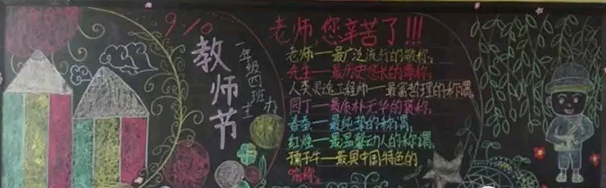 9/10
教师节
一年级四班办
老师您辛苦了!!!
老师——最广泛流行的敬称。
先生——最历史悠长的尊称。
人类灵魂工程师——最富哲理的称谓。
园丁——最质朴无华的褒称。
春蚕——最纯挚的称谓。
红烛——最温馨动人的称谓。
孺子牛——最具中国特色的
喻称。